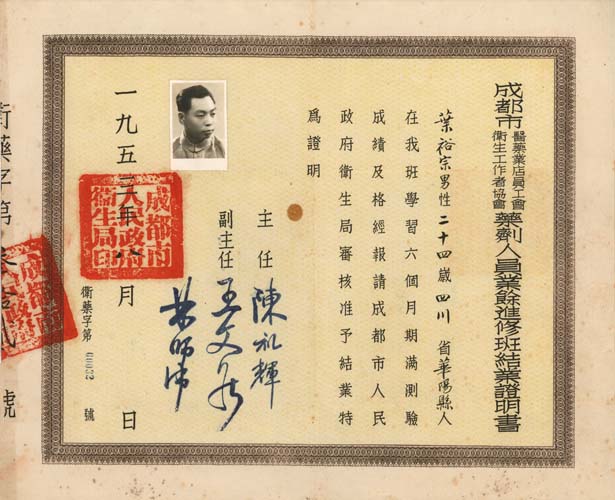 成都市醫藥業店員工會衛生工作者協會藥劑人員業餘進修班結業證明書
葉裕宗男性二十四歲四川省華陽縣人
在我班學習六個月期滿測驗
成績及格經報請成都市人民
政府衛生局審核准予結業特
爲證明
主任 陳礼輝
副主任
一九五三年八月 日
成都市人民政府衛生局印
衛藥字第 號
衛藥字第 號